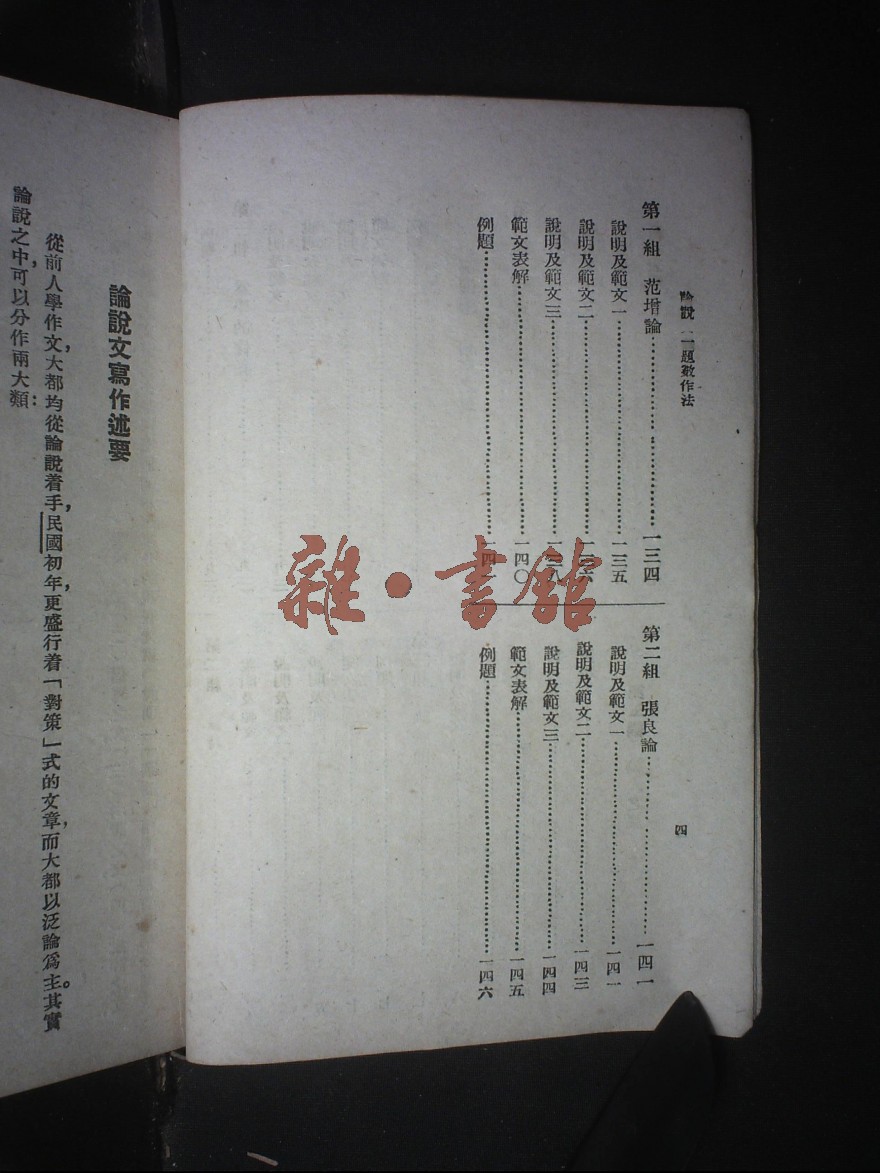 論說 一題數作法
四
第一組 范增論……一三四
說明及範文一……一三五
說明及範文二……一三六
說明及範文三……一三八
範文表解……一四〇
例題……一四
第二組 張良論……一四一
說明及範文一……一四一
說明及範文二……一四三
說明及範文三……一四四
範文表解……一四五
例題……一四六
論說文寫作述要
從前人學作文,大都均從論說着手,民國初年,更盛行着「對策」式的文章,而大都以泛論爲主。其實
論說之中,可以分作兩大類:
雜·書館